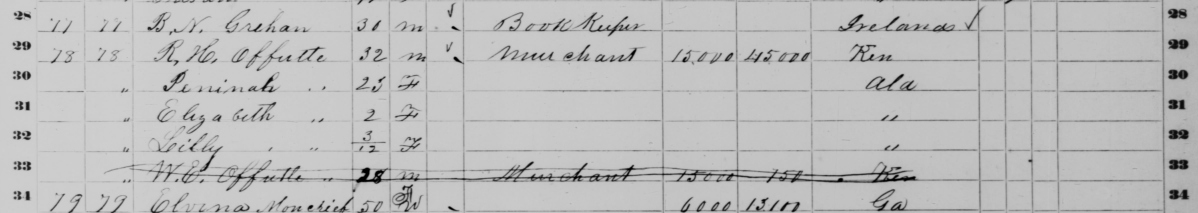 28 77 77 B. N. Grehan 30 m Book Keeper Ireland 28
29 78 78 R. H. Offutte 32 m Murchant 15,000 45,000 Ken 29
30 " Peninah " 23 F Ala 30
31 " Elizabeth " 2 F " 31
32 " Lilly " " 3/12 F " 32
33 " W. E. Offutte " 28 m Murchant 15000 150 Ken 33
34 79 79 Elvina 50 6000 13,100 Ga 34